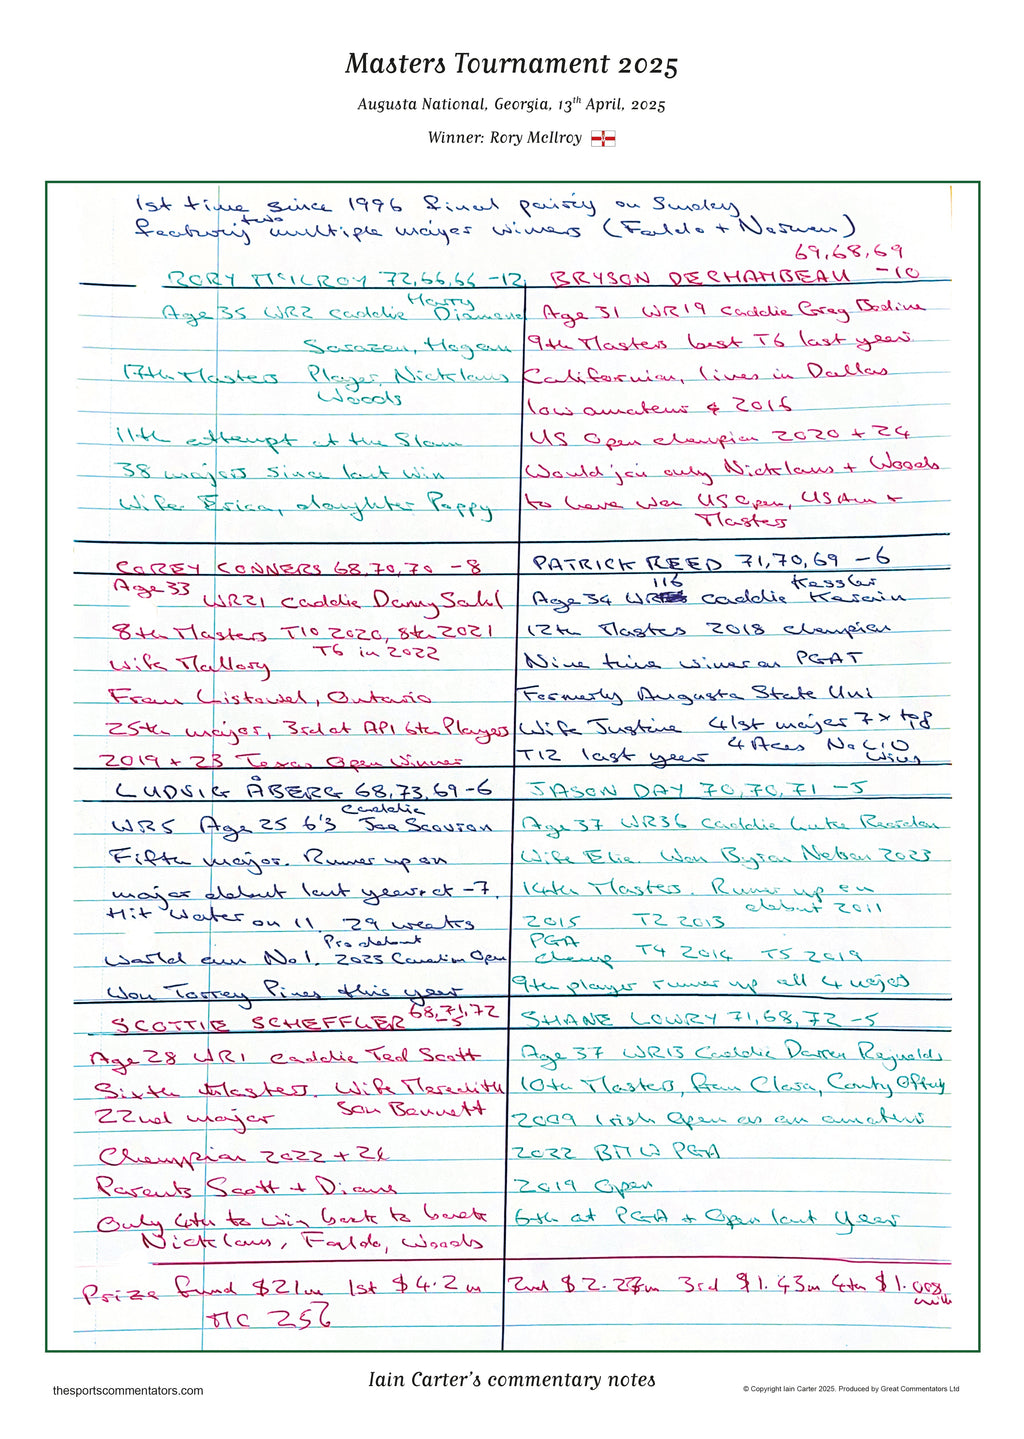 Masters Tournament 2025
Augusta National, Georgia, 13th April, 2025
Winner: Rory McIlroy
1st time since 1996 final pairing on Sunday
featuring two multiple major winners (Faldo + Norman)
RORY MCILROY 72,66,66 -12
Age 35 WR2 caddie Harry Diamond
Sarazen, Hogan
17th Masters Player, Nicklaus
Woods
11th attempt at the Slam
38 majors since last win
Wife Erica, daughter Poppy
69,68,69
BRYSON DECHAMBEAU -10
Age 31 WR19 caddie Greg Bodine
9th Masters best T6 last year
Californian, lives in Dallas
low amateur 2016
US Open champion 2020 + 24
Would join only Nicklaus + Woods
to have won US Open, US Am +
Masters
COREY CONNERS 68,70,70 -8
Age 33
WR21 caddie Danny Sahl
8th Masters T10 2020, 8th 2021
T6 in 2022
Wife Mallory
From Listowel, Ontario
25th major, 3rd at API 6th Players
2019 + 23 Texas Open Winner
PATRICK REED 71,70,69 -6
Age 34 WR 116 caddie Kessler Karain
12th Masters 2018 champion
Nine time winner on PGAT
Formerly Augusta State Uni
Wife Justine 41st major 7 x top 8
T12 last year 4 Aces No LIV
wins
LUDVIG ÅBERG 68,73,69 -6
WR5 Age 25 6'3 caddie Joe Scovron
Fifth major. Runner up on
major debut last year at -7.
Hit water on 11. 29 weeks
World am No 1. Pro debut 2023 Canadian Open
Won Torrey Pines this year
JASON DAY 70,70,71 -5
Age 37 WR36 caddie Luke Reardon
Wife Ellie. Won Byron Nelson 2023
14th Masters. Runner up on
debut 2011
2015 T2 2013
PGA
champ T4 2014 T5 2019
9th player runner up all 4 majors
SCOTTIE SCHEFFLER 68,71,72 -5
Age 28 WR1 caddie Ted Scott
Sixth Masters. Wife Meredith
22nd major Son Bennett
Champion 2022 + 24
Parents Scott + Diane
Only 4th to win back to back
Nicklaus, Faldo, Woods
SHANE LOWRY 71,68,72 -5
Age 37 WR13 Caddie Darren Reynolds
10th Masters, from Clara, County Offaly
2009 Irish Open as an amateur
2022 BMW PGA
2019 Open
6th at PGA + Open last year
Prize fund $21m 1st $4.2m 2nd $2.27m 3rd $1.43m 4th $1.008
mill
MC 256
Iain Carter's commentary notes
thesportscommentators.com
© Copyright Iain Carter 2025. Produced by Great Commentators Ltd